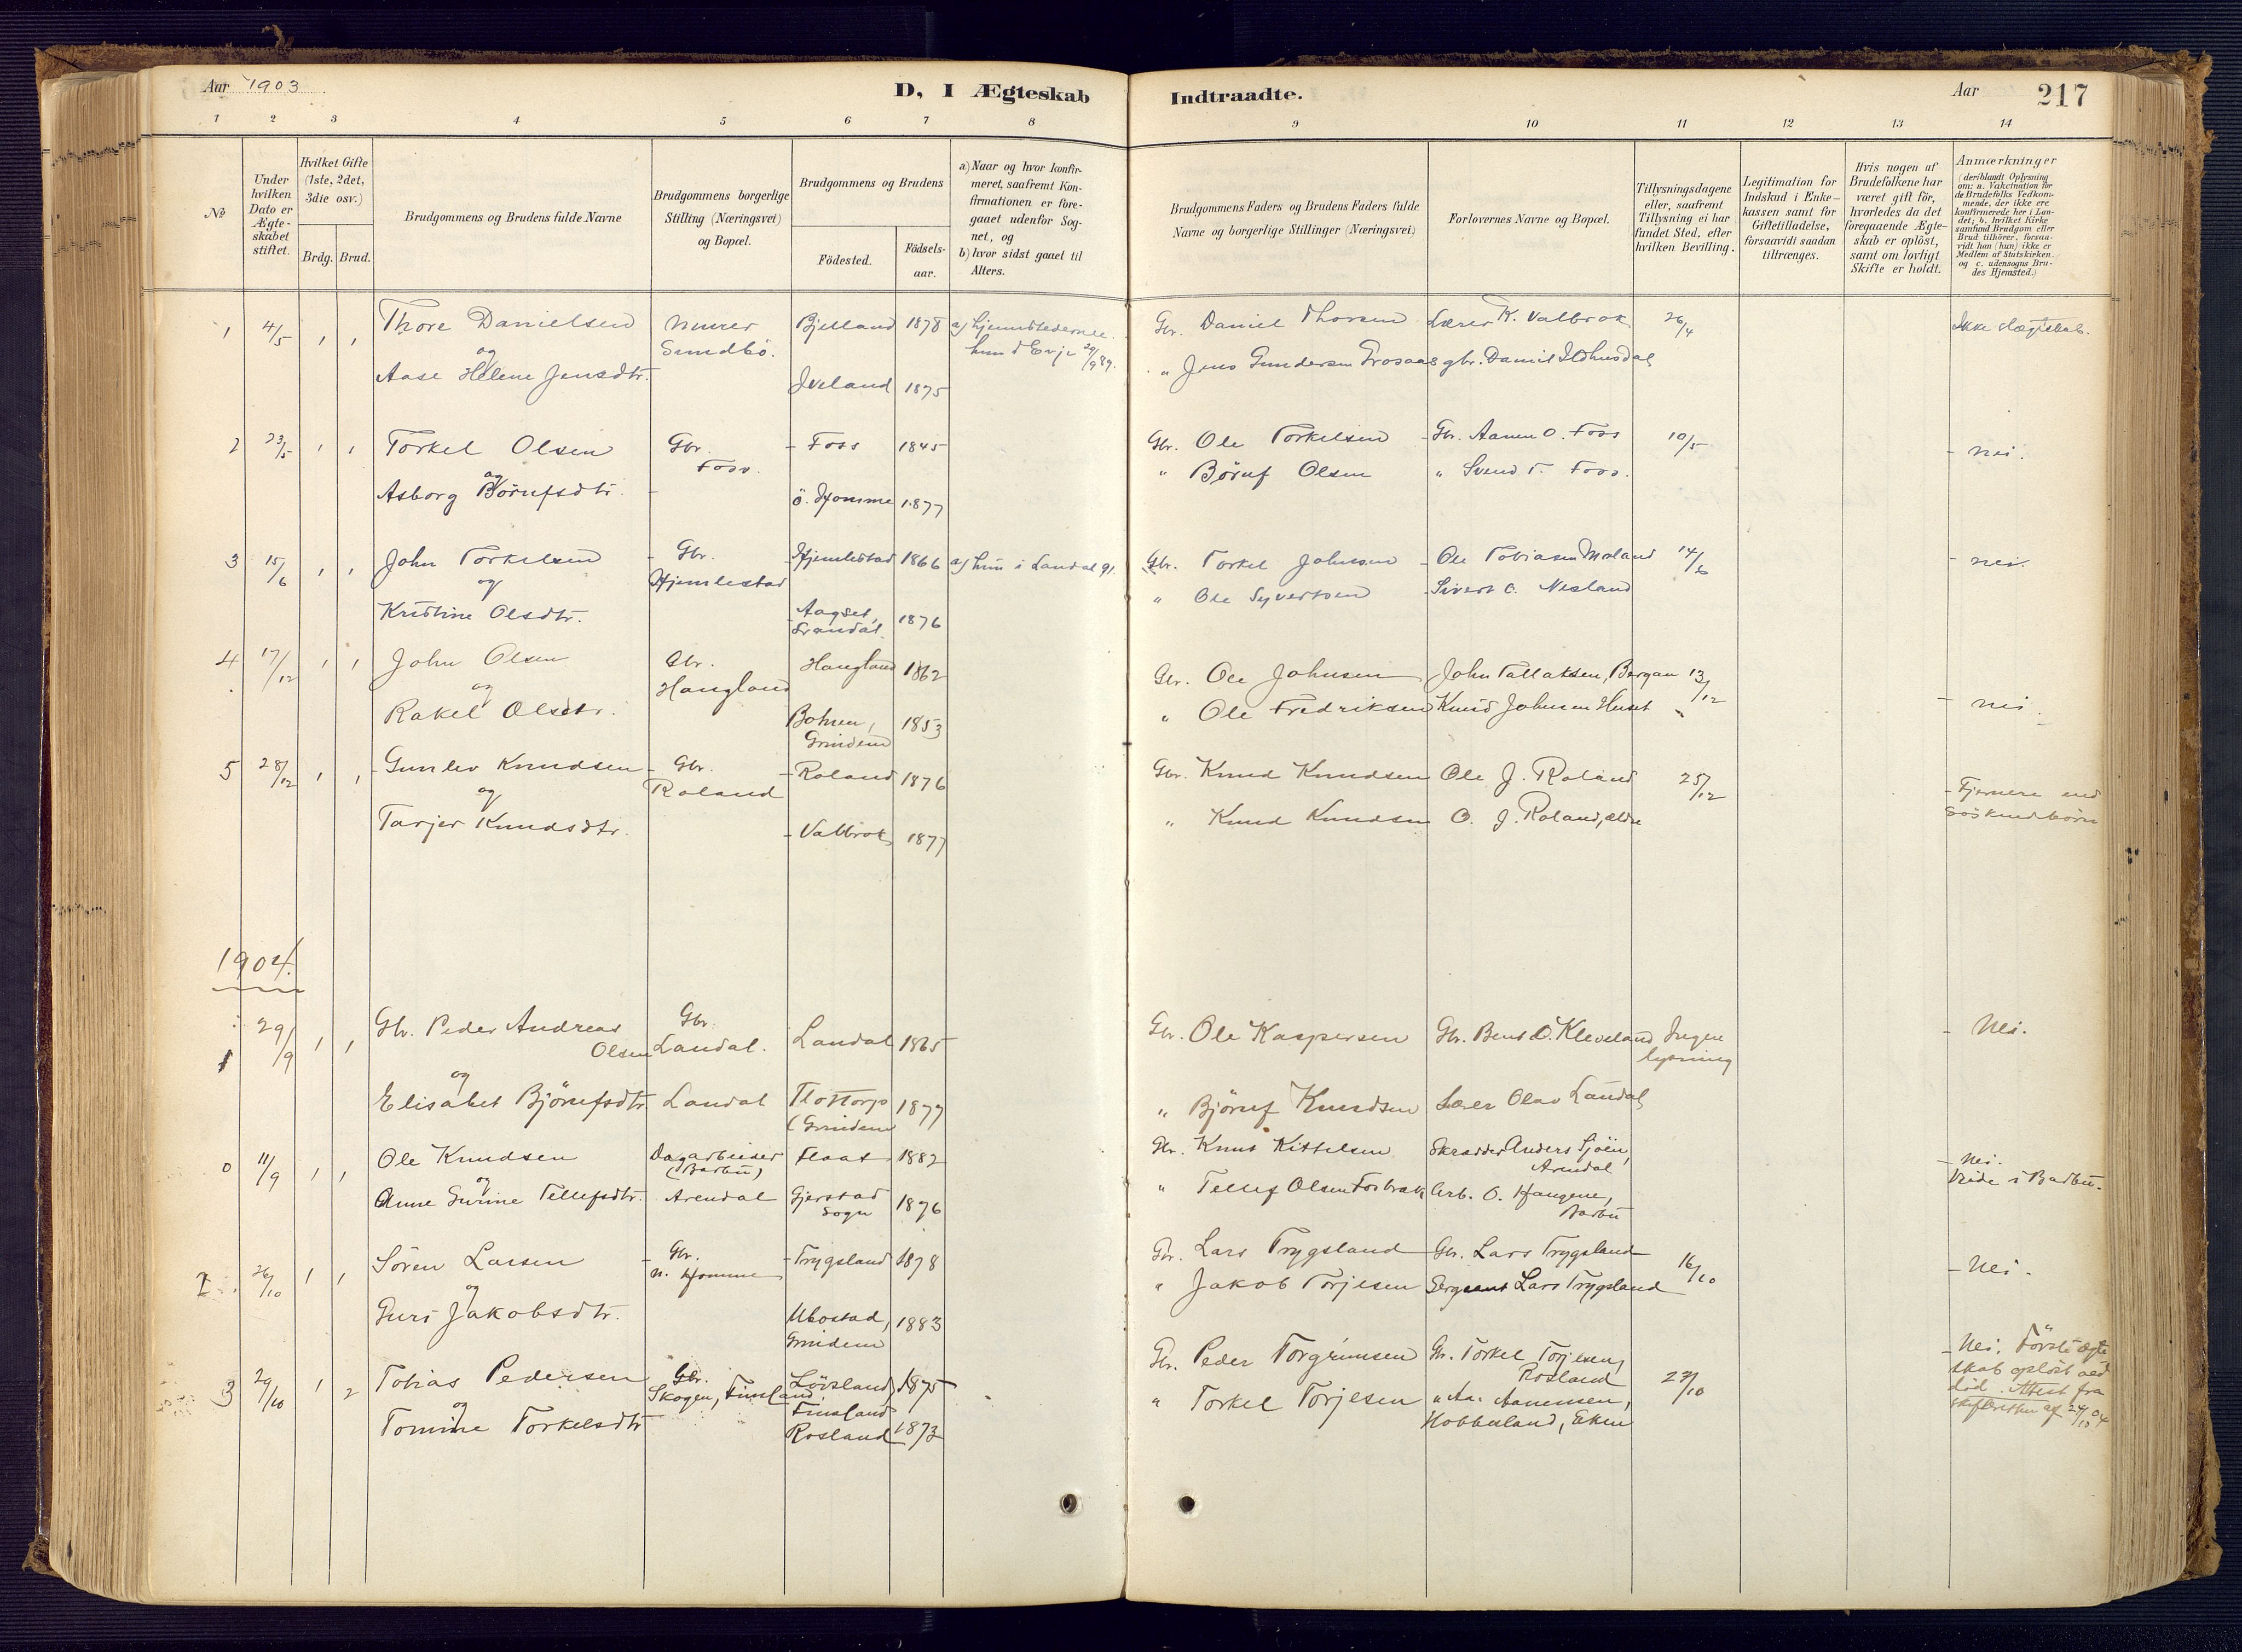 Aar 1903
D, I Ægteskab
Indtraadte.
Aar
217
1 2 3 4 5 6 7 8 9 10 11 12 13 14
No
Under hvilken Dato er Ægteskabet stiftet.
Hvilket Gifte (1ste, 2det, 3die osv.)
Brdg. Brud.
Brudgommens og Brudens fulde Navne
Brudgommens borgerlige Stilling (Næringsvei) og Bopæl.
Brudgommens og Brudens
Födested.
Födsels-aar.
a) Naar og hvor konfirmeret, saafremt Konfirmationen er foregaaet udenfor Sognet, og
b) hvor sidst gaaet til Alters.
Brudgommens Faders og Brudens Faders fulde Navne og borgerlige Stillinger (Næringsvei)
Forlovernes Navne og Bopæl.
Tillysningsdagene eller, saafremt Tillysning ei har fundet Sted, efter hvilken Bevilling.
Legitimation for Indskud i Enkekassen samt for Giftetilladelse, forsaavidt saadan tiltrænges.
Hvis nogen af Brudefolkene har været gift för, hvorledes da det foregaaende Ægteskab er oplöst, samt om lovligt Skifte er holdt.
Anmærkninger (deriblandt Oplysning om: a. Vakcination for de Brudefolks Vedkommende, der ikke ere konfirmerede her i Landet; b. hvilket Kirkesamfund Brudgom eller Brud tilhörer, forsaavidt han (hun) ikke er Medlem af Statskirken, og c. udensogns Brudes Hjemsted.)
1 4/5 1 1 Thore Danielsen Murer Bjelland 1878 a) hjemstederne. Gbr. Daniel Thorsen Lærer K. Valbrok 26/4 Ikke slægtskab.
og Sundbö. hun d Evje 29/9 89.
Aase Helene Jensdtr. Iveland 1875 " Jens Gundersen Frosaas gbr. Daniel Ildhusdal
2 23/5 1 1 Torkel Olsen Gbr. Foss 1845 Gbr. Ole Torkelsen Gbr. Aanen O. Foss 10/5 nei.
og Foss.
Asborg Börufsdtr. ö. Homme 1877 " Böruf Olsen " Svend T. Foss.
3 15/6 1 1 John Torkelsen Gbr. Hjemlestad 1866 a) hun i Landal 91. Gbr. Torkel Johnsen Ole Tobiasen Moland 14/6 nei.
og Hjemlestad
Kristine Olsdtr. Aagset, Grandal 1876 " Ole Syvertsen Sivert O. Nesland
4 17/12 1 1 John Olsen Gbr. Haugland 1862 Gbr. Ole Johnsen John Tallaksen, Bergan 13/12
og Haugland
Rakel Olsdtr. Bohren, Grindem 1853 " Ole Fredriksen Knud Johnsen Huset nei.
5 28/12 1 1 Gunlev Knudsen Gbr. Roland 1876 Gbr. Knud Knudsen Ole J. Roland 25/12 Fjernere end
og Roland söskendbörn
Tarjer Knudsdtr. Valbrok 1877 " Knud Knudsen O. J. Roland, ældre
1904.
1 29/9 1 1 Gbr. Peder Andreas Gbr. Landal 1865 Gbr. Ole Kaspersen Gbr. Bent O. Kleveland Ingen Nei.
Olsen Landal. lysning
og
Elisabet Björufsdtr. Landal Flottorp (Grindem 1877 " Björuf Knudsen Lærer Olav Landal
0 11/9 1 1 Ole Knudsen Dagarbeider Flaat 1882 Gbr. Knut Kittelsen Skrædder Anders Sjöen, Arendal Nei.
og (Barbu) Viede i Barbu.
Anne Gurine Tellefsdtr. Arendal Gjerstad Sogn 1876 " Tellef Olsen Fosbræk Arb. O. Haugene, Barbu
2 26/10 1 1 Sören Larsen Gbr. Trygsland 1878 Gbr. Lars Trygsland Gbr. Lars Trygsland 16/10 Nei.
og n. Homme
Guri Jakobsdtr. Ubostad, Grindem 1883 " Jakob Torjesen Sergeant Lars Trygsland
3 29/10 1 2 Tobias Pedersen Gbr. Lövsland, 1875 Gbr. Peder Torgrimsen Gbr. Torkel Torjesen, Rosland 23/10 Nei. Förste ægte
og Skogen, Finsland. Finsland skab oplöst ved
Tomine Torkelsdtr Rosland 1873 " Torkel Torjesen " Aa. Aanensen, död. Attest fra
Hobbesland, Eken skifteretten af 24/10 04